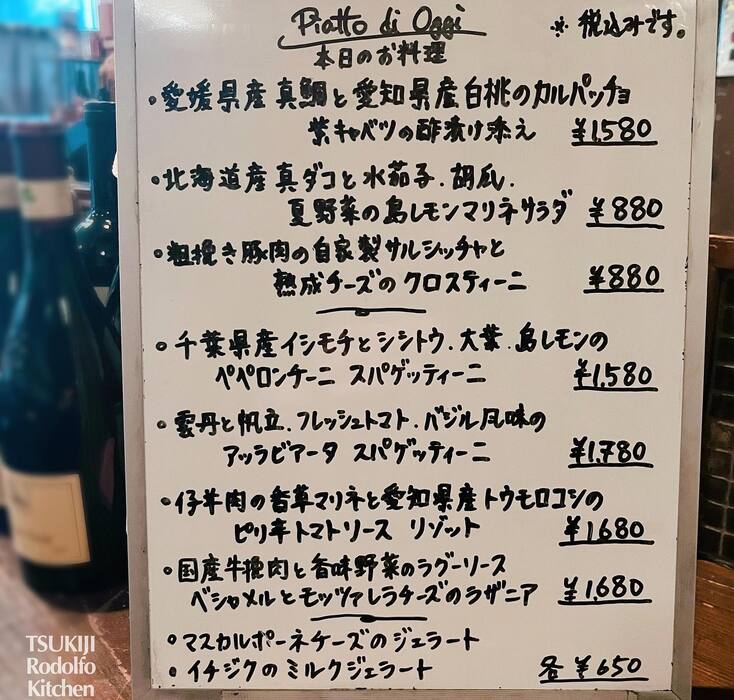 Piatto di Oggi
※ 税込みです。
本日のお料理
・愛媛県産真鯛と愛知県産白桃のカルパッチョ
紫キャベツの酢漬け添え ¥1,580
・北海道産真ダコと水茄子.胡瓜.
夏野菜の島レモンマリネサラダ ¥880
・粗挽き豚肉の自家製サルシッチャと
熟成チーズのクロスティーニ ¥880
・千葉県産イシモチとシシトウ.大葉.島レモンの
ペペロンチーニ スパゲッティーニ ¥1,580
・雲丹と帆立.フレッシュトマト.バジル風味の
アッラビアータ スパゲッティーニ ¥1,780
・仔羊肉の香草マリネと愛知県産トウモロコシの
ピリ辛トマトソース リゾット ¥1,680
・国産牛挽肉と香味野菜のラグーソース
ベシャメルとモッツァレラチーズのラザニア ¥1,680
・マスカルポーネチーズのジェラート
・イチジクのミルクジェラート 各¥650
TSUKIJI
Rodolfo
Kitchen